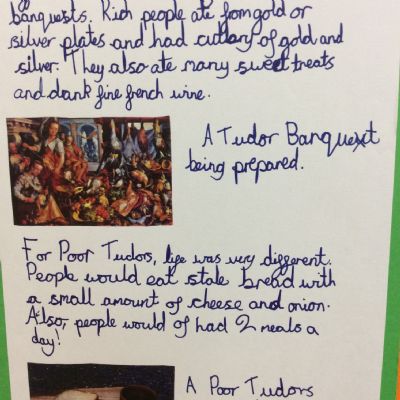 banquests. Rich people ate from gold or
silver plates and had cutlary of gold and
silver. They also ate many sweet treats
and drank fine french wine.
A Tudor Banquet
being prepared.
For Poor Tudors, life was very different.
People would eat stale bread with
a small amount of cheese and onion.
Also, people would of had 2 meals a
day!
A Poor Tudors